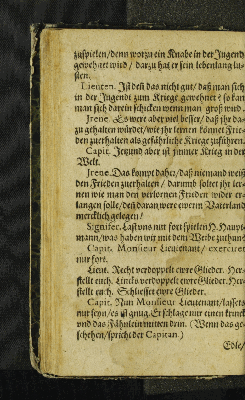 zuspielen/denn worzu ein Knabe in der Jugend
gewehnet wird/ darzu hat er sein lebenlang lu-
sten.
Lieuten. Ist deß das nicht gut/ daß man sich
in der Jugendt zum Kriege gewehnet? so kan
man sich darein schicken wenn man groß wird.
Irene. Es were aber viel besser/ daß ihr da-
zu gehalten würdet/wie ihr lernen könnet Frie-
den zuerhalten als gefährliche Kriege zuführen.
Capit. Jetzund aber ist immer Krieg in der
Welt.
Irene. Das kompt daher/daß niemand weiß
den Frieden zuerhalten/ darumb soltet ihr ler-
nen wie man den verlornen Frieden wider er-
langen solle/deß daran were ewerm Vaterland
mercklich gelegen/
Signifer. Last uns nur fort spielen H. Haupt-
mann/was haben wir mit dem Weibe zuthun?
Capit. Monsieur Lieutenant/ exerciret
nur fort.
Lieut. Recht verdoppelt ewre Glieder. Her-
stellt euch. Lincks verdoppelt ewre Glieder. Her-
stellt euch. Schliesset ewre Glieder.
Capit. Nun Monsieur Lieutenant/lassets
nur seyn/es ist gnug. Er schlage nur einen
und das Fähnlein mitten drin. (Wenn das ge-
schehen/spricht der Capitan.)
Edle/